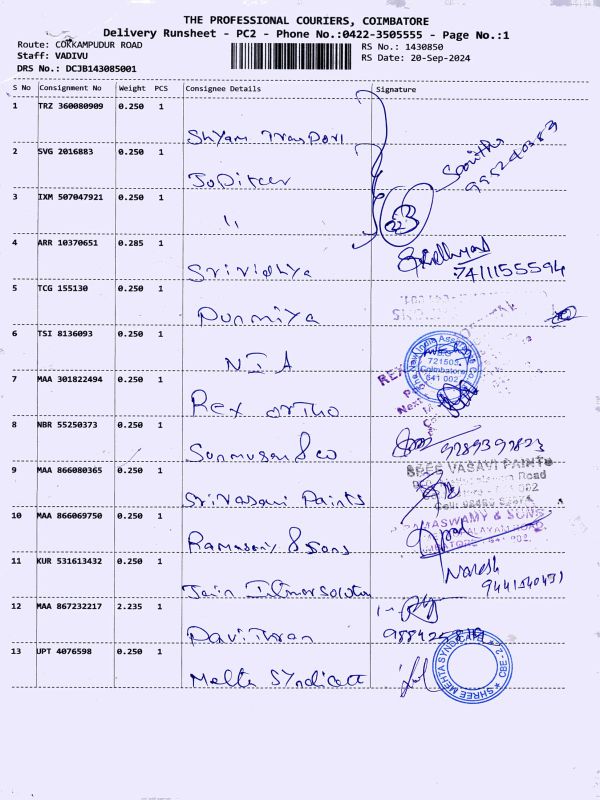 THE PROFESSIONAL COURIERS, COIMBATORE
Delivery Runsheet - PC2 - Phone No.:0422-3505555 - Page No.:1
Route: COKKAMPUDUR ROAD
RS No.: 1430850
Staff: VADIVU
RS Date: 20-Sep-2024
DRS No.: DCJB143085001
S No Consignment No Weight PCS Consignee Details Signature
1 TRZ 360080909 0.250 1
Shyam Transport
2 SVG 2016883 0.250 1
Jupiter
3 IXM 507047921 0.250 1
"
4 ARR 10370651 0.285 1
Srividhya
7411155594
5 TCG 155130 0.250 1
6 TSI 8136093 0.250 1
NIA
The New India Assurance Co.
721503
Coimbatore
641 002
7 MAA 301822494 0.250 1
Rex ortho
8 NBR 55250373 0.250 1
9 MAA 866080365 0.250 1
Srivasavi Paints
SREE VASAVI PAINTS
10 MAA 866069750 0.250 1
Ramasamy & Sons
RAMASWAMY & SONS
11 KUR 531613432 0.250 1
Jain
Naresh
12 MAA 867232217 2.235 1
Pavithran
13 UPT 4076598 0.250 1
Mehta Syndicate
SHREE MEHTA SYNDICATE CBE-2